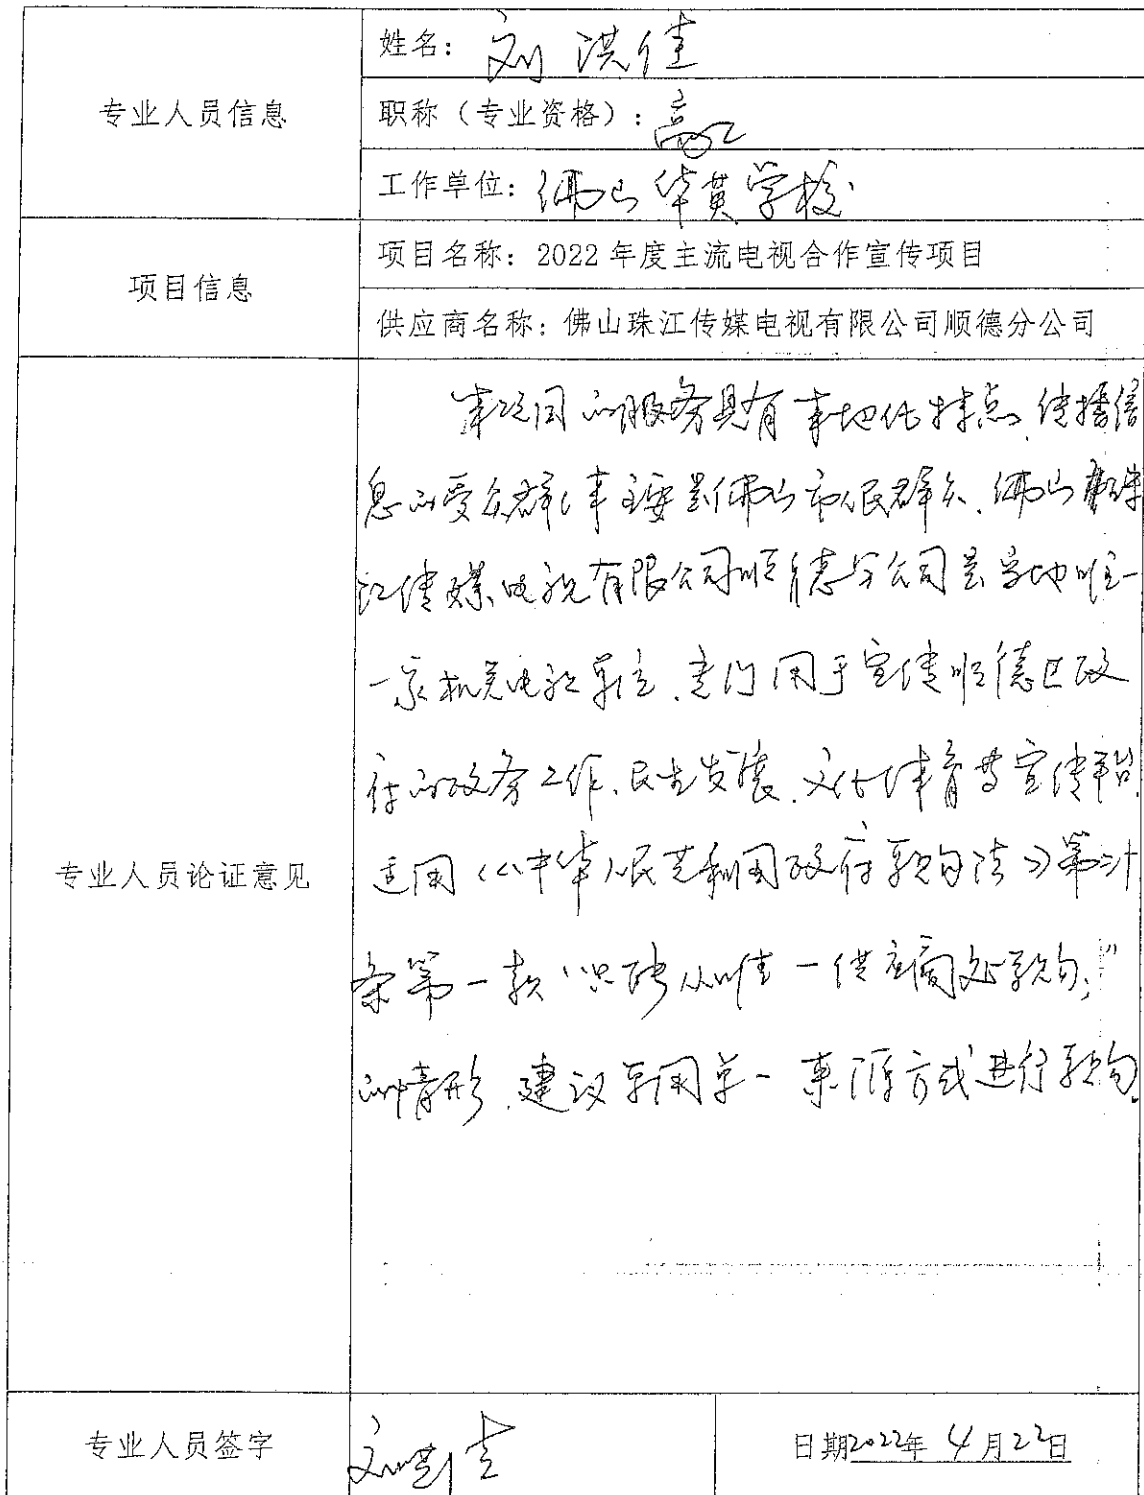 专业人员信息
姓名：刘洪佳
职称（专业资格）：高工
工作单位：佛山华英学校
项目信息
项目名称：2022 年度主流电视合作宣传项目
供应商名称：佛山珠江传媒电视有限公司顺德分公司
专业人员论证意见
本项目的服务具有本地化特点，传播信
息的受众群体主要是佛山市民群众，佛山珠
江传媒电视有限公司顺德分公司是当地唯一
一家机关电视单位，专门用于宣传顺德区政
府的政务工作、民生发展、文化体育等宣传平台，
适用《中华人民共和国政府采购法》第三十一
条第一款“只能从唯一供应商处采购；”
的情形，建议采用单一来源方式进行采购。
专业人员签字
刘洪佳
日期2022年 4月22日